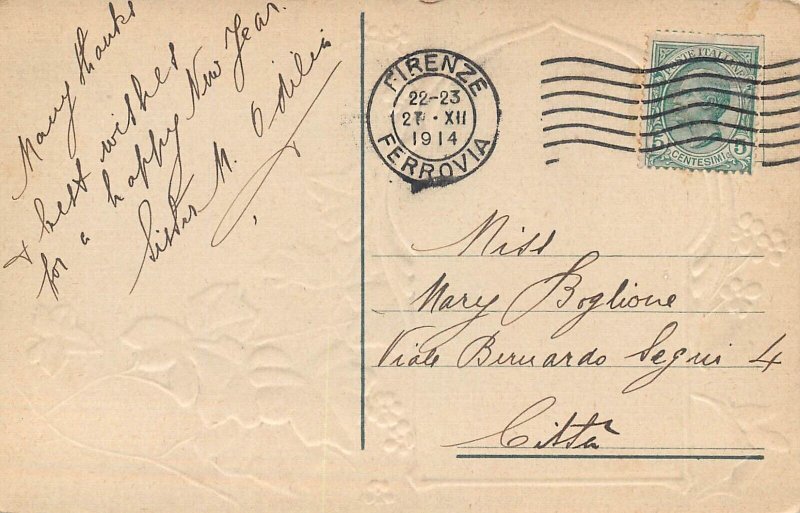 Many thanks
& best wishes
for a happy New Year.
Sister M. Odilia
FIRENZE
22-23
27 · XII
1914
FERROVIA
POSTE ITALIANE
5 CENTESIMI 5
Miss
Mary Boglione
Viale Bernardo Segni 4
Città